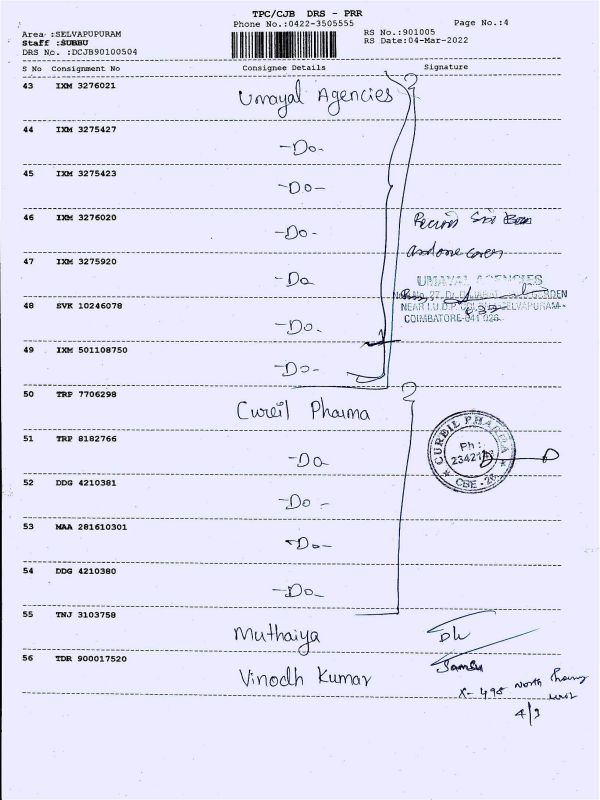 TPC/CJB DRS - PRR
Phone No.:0422-3505555
Page No.:4
Area :SELVAPUPURAM
Staff :SUBBU
DRS No. :DCJB90100504
RS No.:901005
RS Date:04-Mar-2022
S No Consignment No Consignee Details Signature
43 IXM 3276021 Umayal Agencies
44 IXM 3275427 -Do-
45 IXM 3275423 -Do-
46 IXM 3276020 -Do-
47 IXM 3275920 -Do
48 SVK 10246078 -Do.
49 IXM 501108750 -Do-
and one cover
UMAYAL AGENCIES
NEAR I.U.D.P. SELVAPURAM
COIMBATORE-641 026
50 TRP 7706298 Cureil Pharma
51 TRP 8182766 -Do
CUREIL PHARMA
Ph :
CBE - 26
52 DDG 4210381 -Do -
53 MAA 281610301 -Do-
54 DDG 4210380 -Do-
55 TNJ 3103758 Muthaiya
56 TDR 900017520 Vinodh Kumar
X- 498 North
4/3